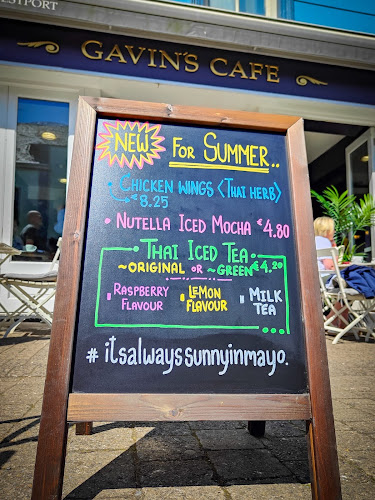 ESTPORT
GAVIN'S CAFE
NEW FOR SUMMER..
CHICKEN WINGS <THAI HERB>
€8.25
NUTELLA ICED MOCHA €4.80
THAI ICED TEA
~ORIGINAL OR ~GREEN €4.20
RASPBERRY FLAVOUR
LEMON FLAVOUR
MILK TEA
# itsalwayssunnyinmayo.